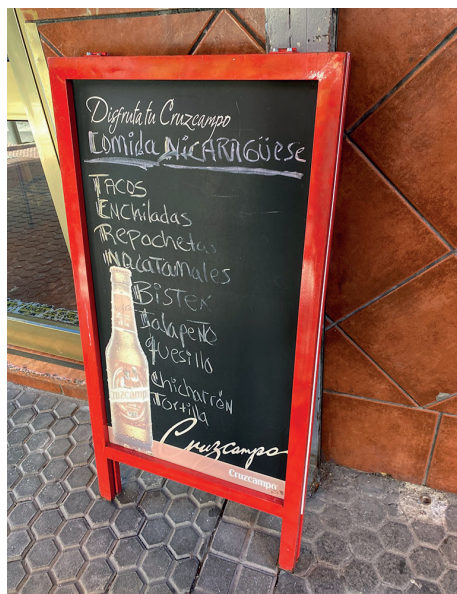 Disfruta tu Cruzcampo
Comida NICARAGÜESE
TACOS
ENchiladas
Repochetas
NACATAMales
BISTEK
Jalapeño
Quesillo
Chicharrón
Tortilla
Cruzcampo
Cruzcampo